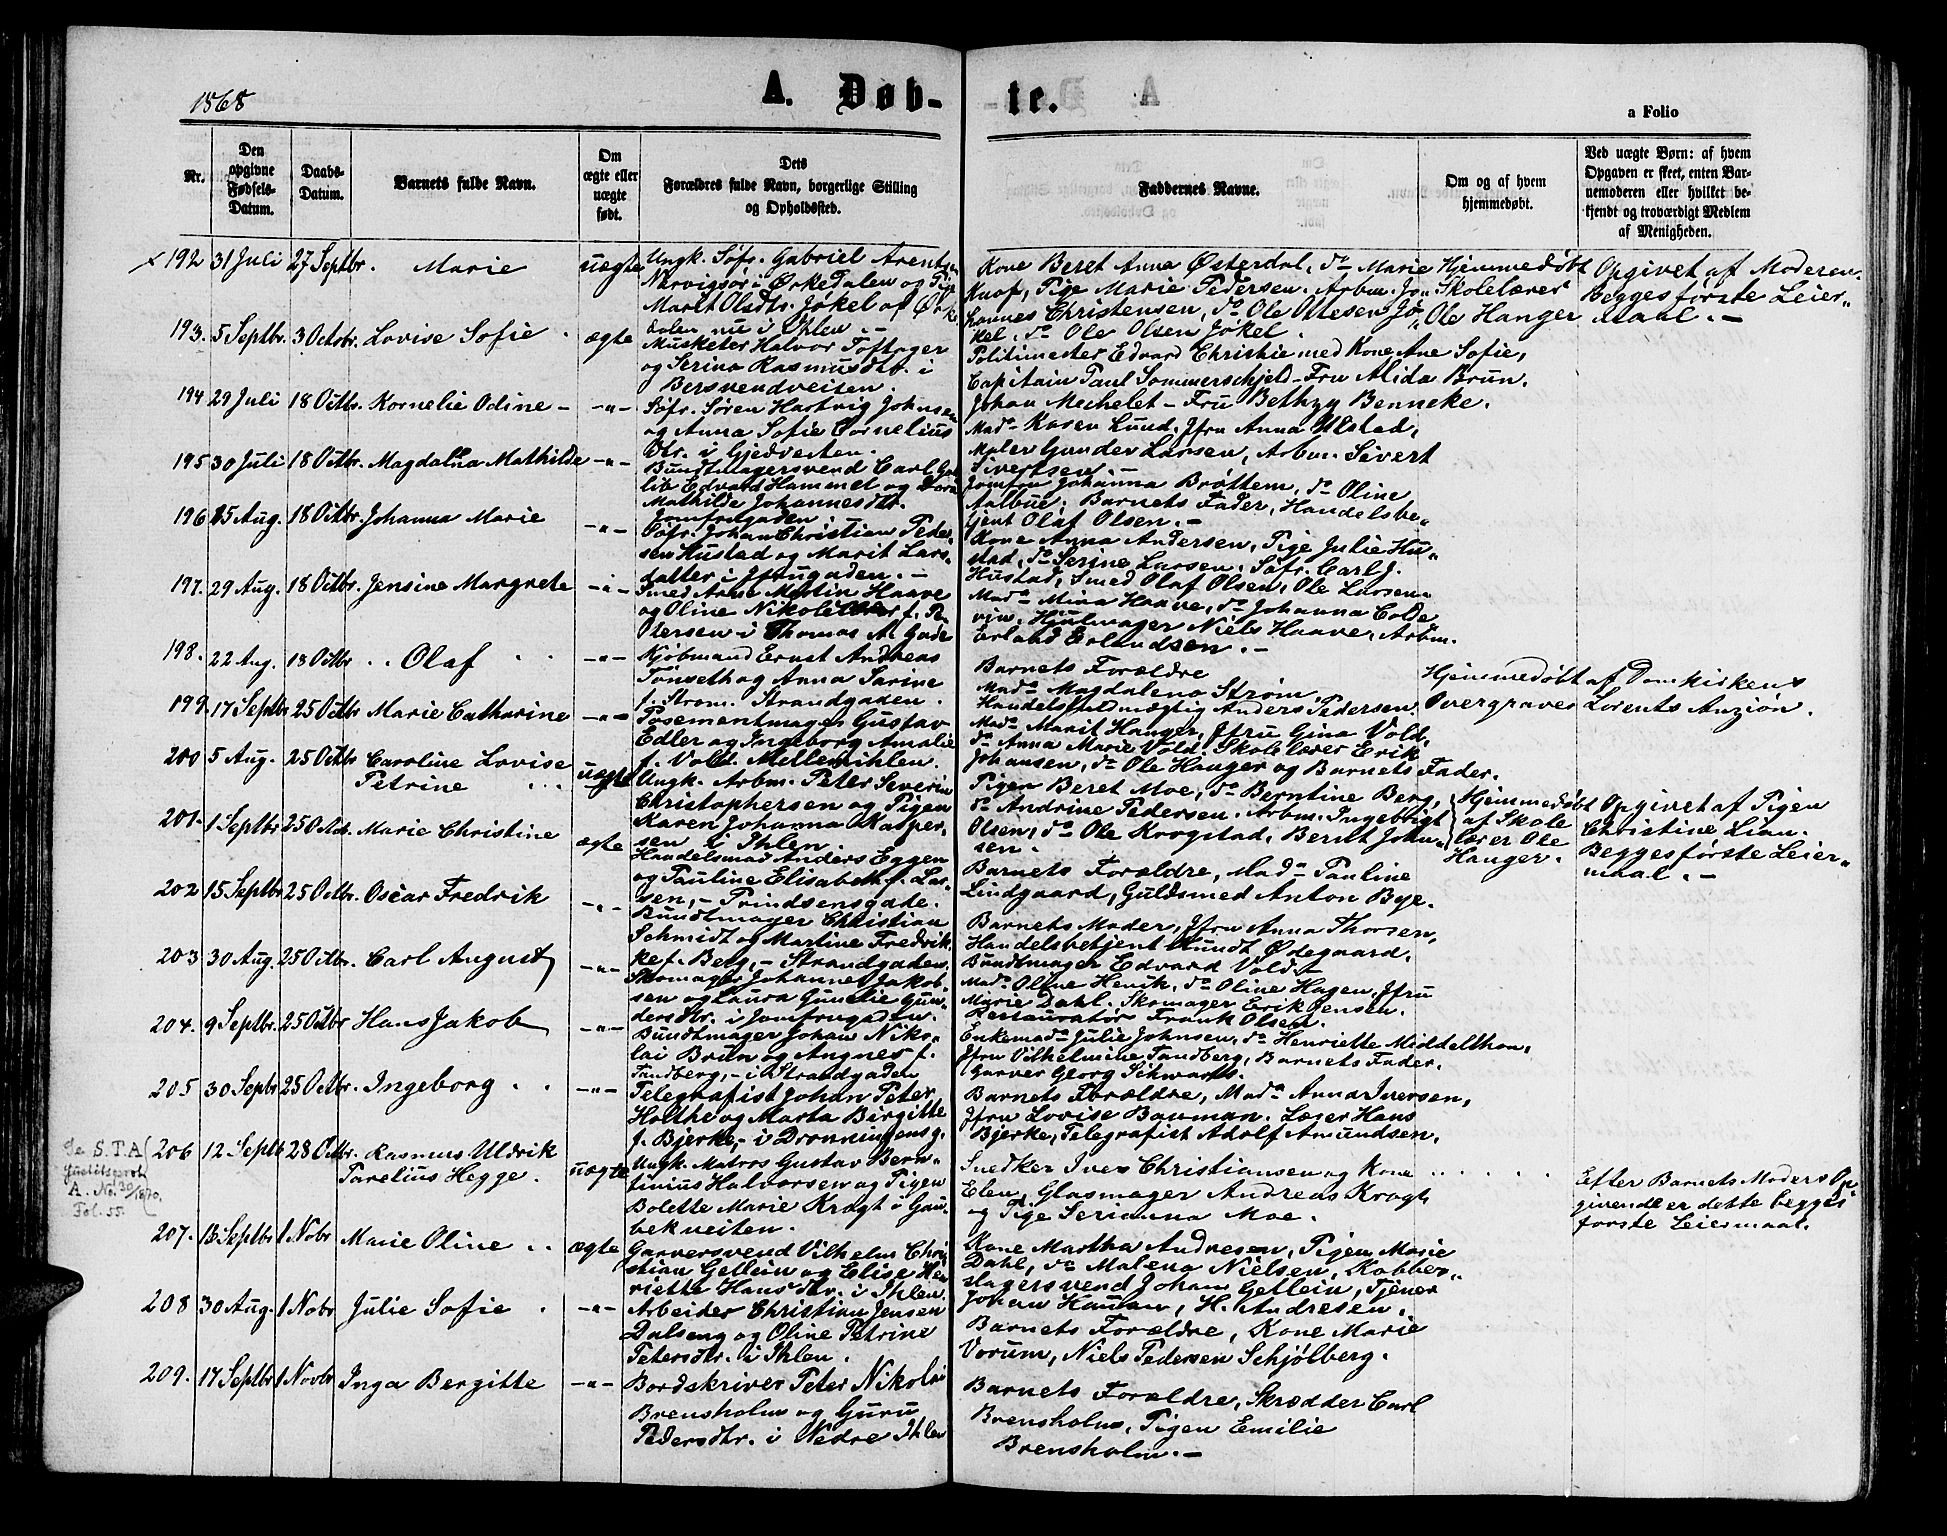 1868
A. Døb-
te.
a Folio
Nr.
Den opgivne Fødsels-Datum.
Daabs-Datum.
Barnets fulde Navn.
Om ægte eller uægte født.
Dets
Forældres fulde Navn, borgerlige Stilling
og Opholdssted.
Faddernes Navne.
Om og af hvem
hjemmedøbt.
Ved uægte Børn: af hvem
Opgaven er skeet, enten Bar-
nemoderen eller hvilket be-
kjendt og troværdigt Medlem
af Menigheden.
192 31 Juli 27 Septbr. Marie uægte
Ungk. Søfr. Gabriel Arentsen
Nervigsør i Ørkedalen og Pige
Marit Olsdtr. Jøkel af Ørke
dalen nu i Ihlen. -
Kone Beret Anna Østerdal, do Marie
Knof, Pige Marie Pedersen. Arbm. Jo-
hannes Christensen, do Ole Ottesen Jø-
kel. do Ole Olsen Jøkel.
Hjemmedøbt
Skolelærer
Ole Hanger
Opgivet af Moderen.
Begges første Leier-
maal. -
193. 5 Septbr. 3 Octobr. Lovise Sofie ægte
Musketer Halvor Toftager
og Serina Rasmusdtr. i
Bersvendveiten.
Politimester Edvard Christie med Kone Ane Sofie,
Capitain Paul Sommerschjeld - Fru Alida Brun.
Johan Mechelet - Fru Bethzy Benneke.
194 29 Juli 18 Octbr. Kornelie Odine - -"-
Søfr. Søren Hartvig Johnsen
og Anna Sofie Cornelius
Dtr. i Gjedveiten.
Mad. Karen Lund. Jfru Anna Ulstad,
Maler Gunder Larsen, Arbm. Sivert
Sivertsen. -
195 30 Juli 18 Octbr. Magdalena Mathilde -"-
Bundtmagersvend Carl Got
lib Edvard Hammel og
Mathilde Johannesdtr.
Jomfrugaden.
Jomfru Johanna Brøttem, do Oline
Aalbue. Barnets Fader, Handelsbe-
tjent Olaf Olsen. -
196 15 Aug. 18 Octbr. Johanna Marie -"-
Søfr. Johan Christian Peder
sen Hustad og Marit Lars-
datter i Jfrugaden. -
Kone Anna Andersen, Pige Julie Hu-
stad, do Serine Larsen. Søfr. Carl J.
Hustad, Smed Olaf Olsen, Ole Larsen.
197. 29 Aug. 18 Octbr. Jensine Margrete -"-
Smed Arne Martin Haave
og Oline Nikoline f. P.
Otersen i Thomas A. Gade
Mad. Mina Haave, do Johanna Colde
vin. Hjulmager Niels Haaver, Arbm.
Erland Erlandsen. -
198. 22 Aug. 18 Octbr Olaf -"-
Kjøbmand Ernst Andreas
Tønseth og Anna Sarine
f. Strøm. Strandgaden.
Barnets Forældre
Mad. Magdalena Strøm,
Handelsfuldmægtig Anders Pedersen.
Hjemmedøbt af Domkirkens
Overgraver Lorents Anzjøn.
199 17 Septbr 25 Octbr Marie Catharine -"-
Posementmager Gustav
Edler og Ingeborg Amalie
f. Vold. Mellemihlen.
Mad. Marit Hanger, Jfru Gina Vold,
do Anna Marie Vold. Skolelærer Erik
Johansen, do Ole Hanger og Barnets Fader.
200 5 Aug. 25 Octbr Caroline Lovise
Petrine uægte
Ungk. Arbm. Peter Severin
Christophersen og Pigen
Karen Johanna Kasper-
sen i Ihlen.
Pigen Beret Moe, do Berntine Berg,
do Andrine Pedersen. Arbm. Ingebrigt
Olsen, do Ole Krogstad, Bernt John-
sen.
Hjemmedøbt
af Skole
lærer Ole
Hanger.
Opgivet af Pigen
Christine Lian.
Begges første Leier-
maal. -
201. 1 Septbr 25 Octbr. Marie Christine ægte
Handelsmad Anders Eggen
og Pauline Elisabeth f. Lar-
sen, - Prindsensgade.
Barnets Forældre, Mad. Pauline
Lindgaard, Guldsmed Anton Bye.
202 15 Septbr 25 Octbr. Oscar Fredrik -"-
Bundtmager Christian
Schmidt og Martine Fredrik-
ke f. Berg, - Strandgaden.
Barnets Moder, Jfru Anna Thorsen,
Handelsbetjent Lundt Ødegaard,
Bundtmager Edvard Vold -
203 30 Aug. 25 Octbr. Carl August -"-
Skomager Johannes Jakob-
sen og Laura Gunelie Gun-
dersdtr. i Jomfrugaden.
Mad. Oline Henik, do Oline Hagen, Jfru
Marie Dahl. Skomager Erik Jensen.
Restauratør Frank Olsen.
204. 9 Septbr. 25 Octbr Hans Jakob -"-
Bundtmager Johan Niko-
lai Brun og Angnes f.
Tandberg, - i Strandgaden
Enkemad. Julie Johnsen, do Henriette Middelthon,
Jfru Vilhelmine Tandberg, Barnets Fader.
Garver Georg Schwarts.
205 30 Septbr 25 Octbr. Ingeborg -"-
Telegrafist Johan Peter
Holthe og Marta Birgitte
f. Bjerke, - i Dronningensg.
Barnets Forældre, Mad. Anna Iversen,
Jfru Lovise Bauman. Læger Hans
Bjerke, Telegrafist Adolf Amundsen.
Se S.T.A.
A. No. 30/1870.
Fol. 55.
206 12 Septb 28 Octbr. Rasmus Uldrik
Tarelius Hegge. uægte
Ungk. Matros Gustav Bern-
tinius Halvorsen og Pigen
Bolette Marie Kragt i Gau-
bekveiten.
Snedker Iver Christiansen og Kone
Elen, Glasmager Andreas Kragt,
og Pige Serianna Moe.
Efter Barnets Moders Op-
givende er dette begges
første Leiermaal.
207. 13 Septbr 1 Nobr Marie Oline ægte
Garversvend Vilhelm Chri
stian Gellein og Elise Hen
riette Hansdtr. i Ihlen.
Kone Martha Andresen, Pigen Marie
Dahl, do Malena Nielsen, Kobber-
slagersvend Johan Gellein, Tjener
Johan Hansen, H. Andresen.
208 30 Aug. 1 Nobr Julie Sofie -"-
Arbeider Christian Jensen
Dalseng og Oline Petrine
Petersdtr. i Ihlen.
Barnets Forældre, Kone Marie
Vorum, Niels Pedersen Schjølberg.
209. 17 Septbr 1 Novbr Inga Bergitte -"-
Bordskriver Peter Nikolai
Brensholm og Guru
Pedersdtr. i Nedre Ihlen
Barnets Forældre, Skrædder Carl
Brensholm, Pigen Emilie
Brensholm. -